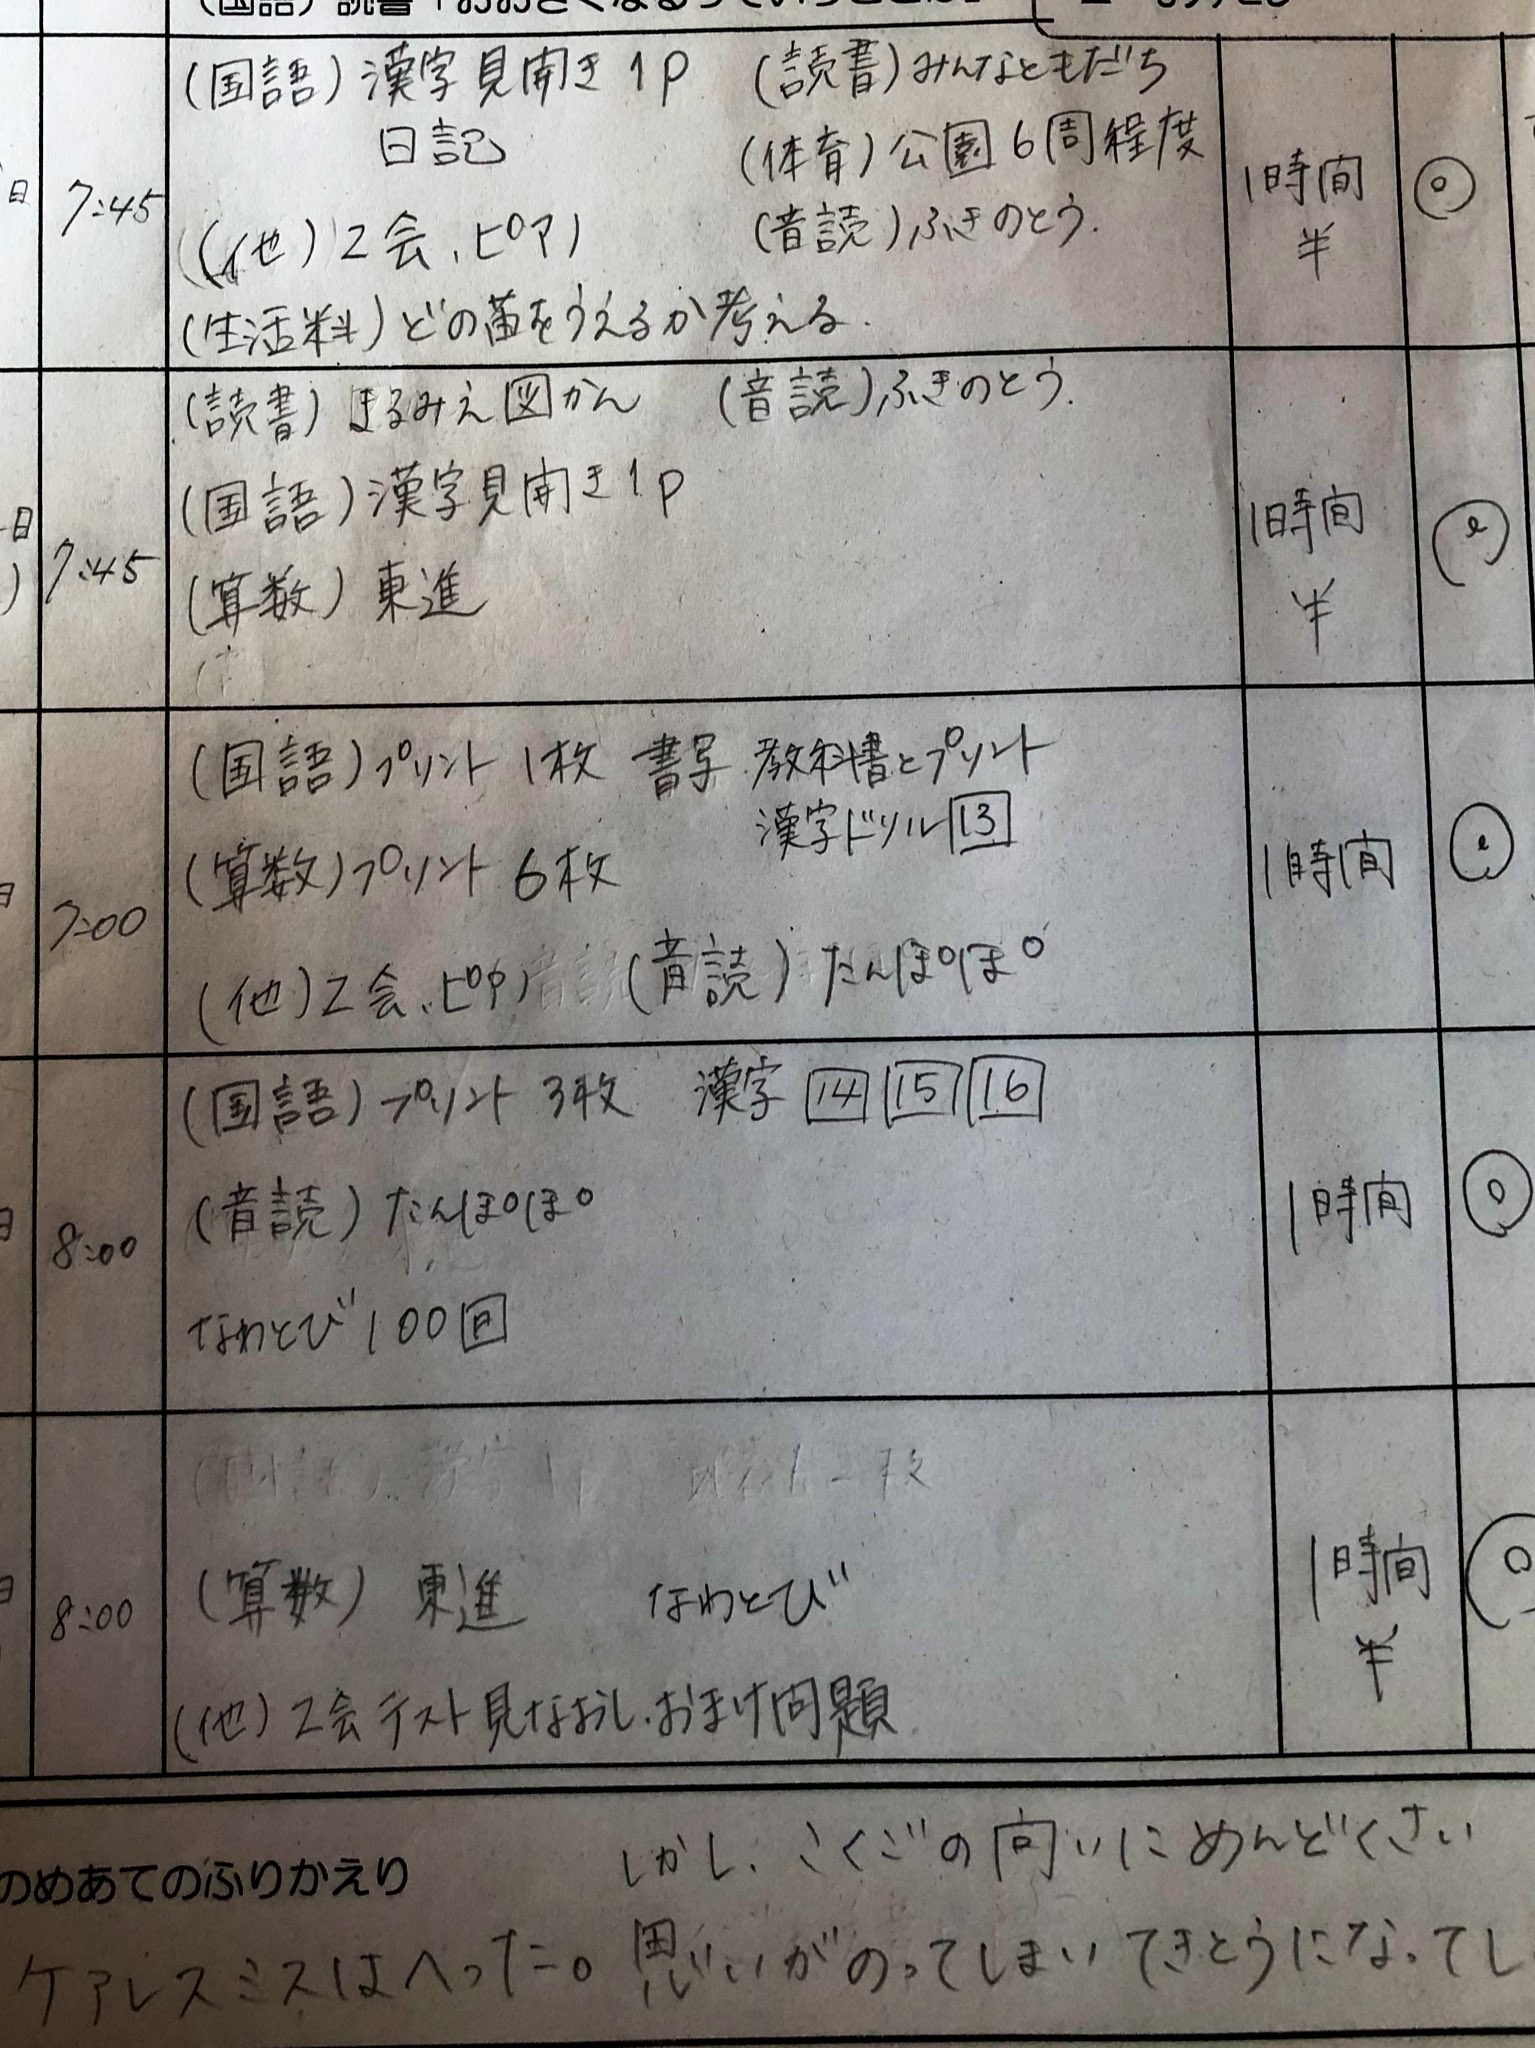 (国語) 読書「おおきくなるっていうことは」
(国語) 漢字見開き1P (読書) みんなともだち
日記 (体育) 公園6周程度
日 7:45 1時間半 ◎
(他) Z会、ピアノ (音読) ふきのとう.
(生活料) どの苗をうえるか考える.
(読書) まるみえ図かん (音読) ふきのとう.
(国語) 漢字見開き1P
日 7:45 1時間半
(算数) 東進
(国語) プリント1枚 書写 教科書とプリント
漢字ドリル13
(算数) プリント6枚
7:00 1時間
(他) Z会、ピアノ (音読) たんぽぽ
(国語) プリント3枚 漢字 14 15 16
(音読) たんぽぽ
8:00 1時間 ◎
なわとび100回
(算数) 東進 なわとび
8:00 1時間半 ◎
(他) Z会テスト見なおし.おまけ問題
のめあてのふりかえり
しかし、こくごの向いにめんどくさい
ケアレスミスはへった。思いがのってしまいてきとうになってし